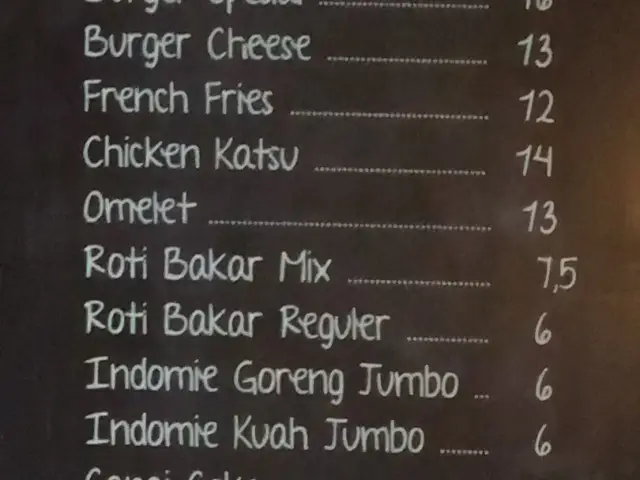 Burger Special ........ 16
Burger Cheese ........ 13
French Fries ........ 12
Chicken Katsu ........ 14
Omelet ........ 13
Roti Bakar Mix ........ 7,5
Roti Bakar Reguler ........ 6
Indomie Goreng Jumbo ... 6
Indomie Kuah Jumbo ..... 6